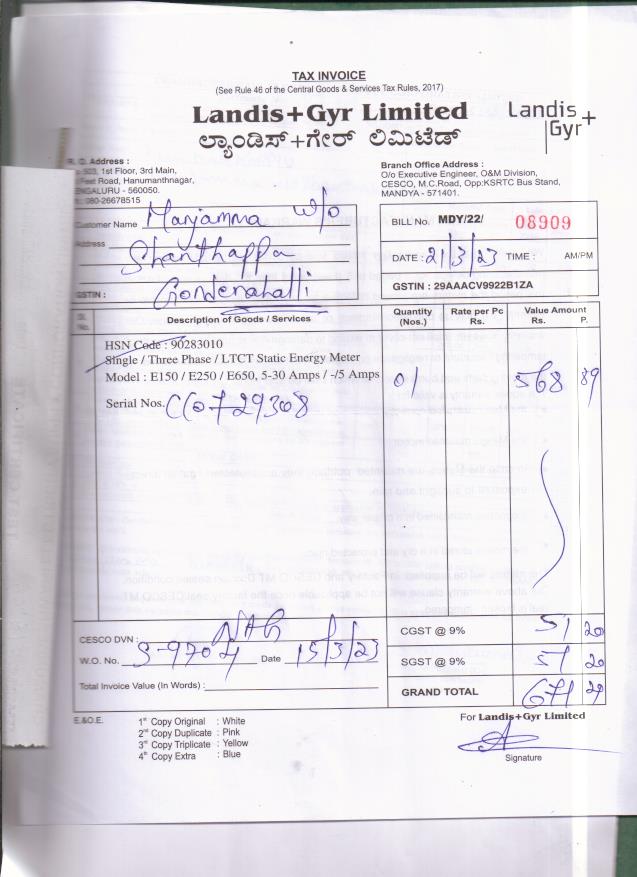 TAX INVOICE
(See Rule 46 of the Central Goods & Services Tax Rules, 2017)
Landis+Gyr Limited
Landis+
Gyr
ಲ್ಯಾಂಡಿಸ್+ಗೇರ್ ಲಿಮಿಟೆಡ್
R. O. Address :
503, 1st Floor, 3rd Main,
Feet Road, Hanumanthnagar,
BENGALURU - 560050.
080-26678515
Branch Office Address :
O/o Executive Engineer, O&M Division,
CESCO, M.C.Road, Opp:KSRTC Bus Stand,
MANDYA - 571401.
Customer Name Manjamma w/o
Address Shanthappa
GSTIN : Gondenahalli
BILL No. MDY/22/ 08909
DATE : 21/3/23 TIME : AM/PM
GSTIN : 29AAACV9922B1ZA
Sl. No. Description of Goods / Services Quantity (Nos.) Rate per Pc Rs. Value Amount Rs. P.
HSN Code : 90283010
Single / Three Phase / LTCT Static Energy Meter
Model : E150 / E250 / E650, 5-30 Amps / -/5 Amps 01 568 89
Serial Nos. CC0729308
CESCO DVN : NAG
W.O. No. S-9704 Date 15/3/23
Total Invoice Value (In Words) :
CGST @ 9% 51 20
SGST @ 9% 51 20
GRAND TOTAL 671 29
E.&O.E.
1st Copy Original : White
2nd Copy Duplicate : Pink
3rd Copy Triplicate : Yellow
4th Copy Extra : Blue
For Landis+Gyr Limited
Signature